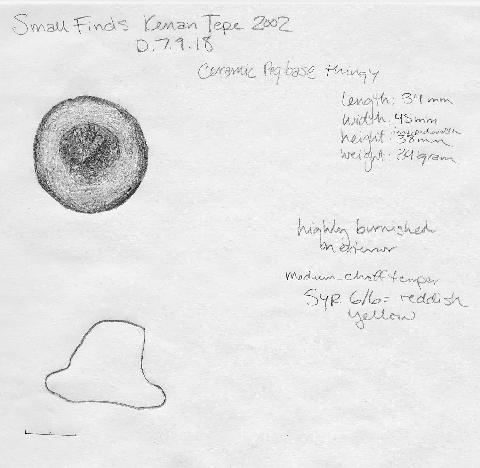 Small Finds Kenan Tepe 2002
D.7.9.18
Ceramic Pegbase thingy
length: 34mm
width: 43mm
height: 38mm
weight: gram
highly burnished
on exterior
medium chaff temper
5YR 6/6 = reddish
yellow